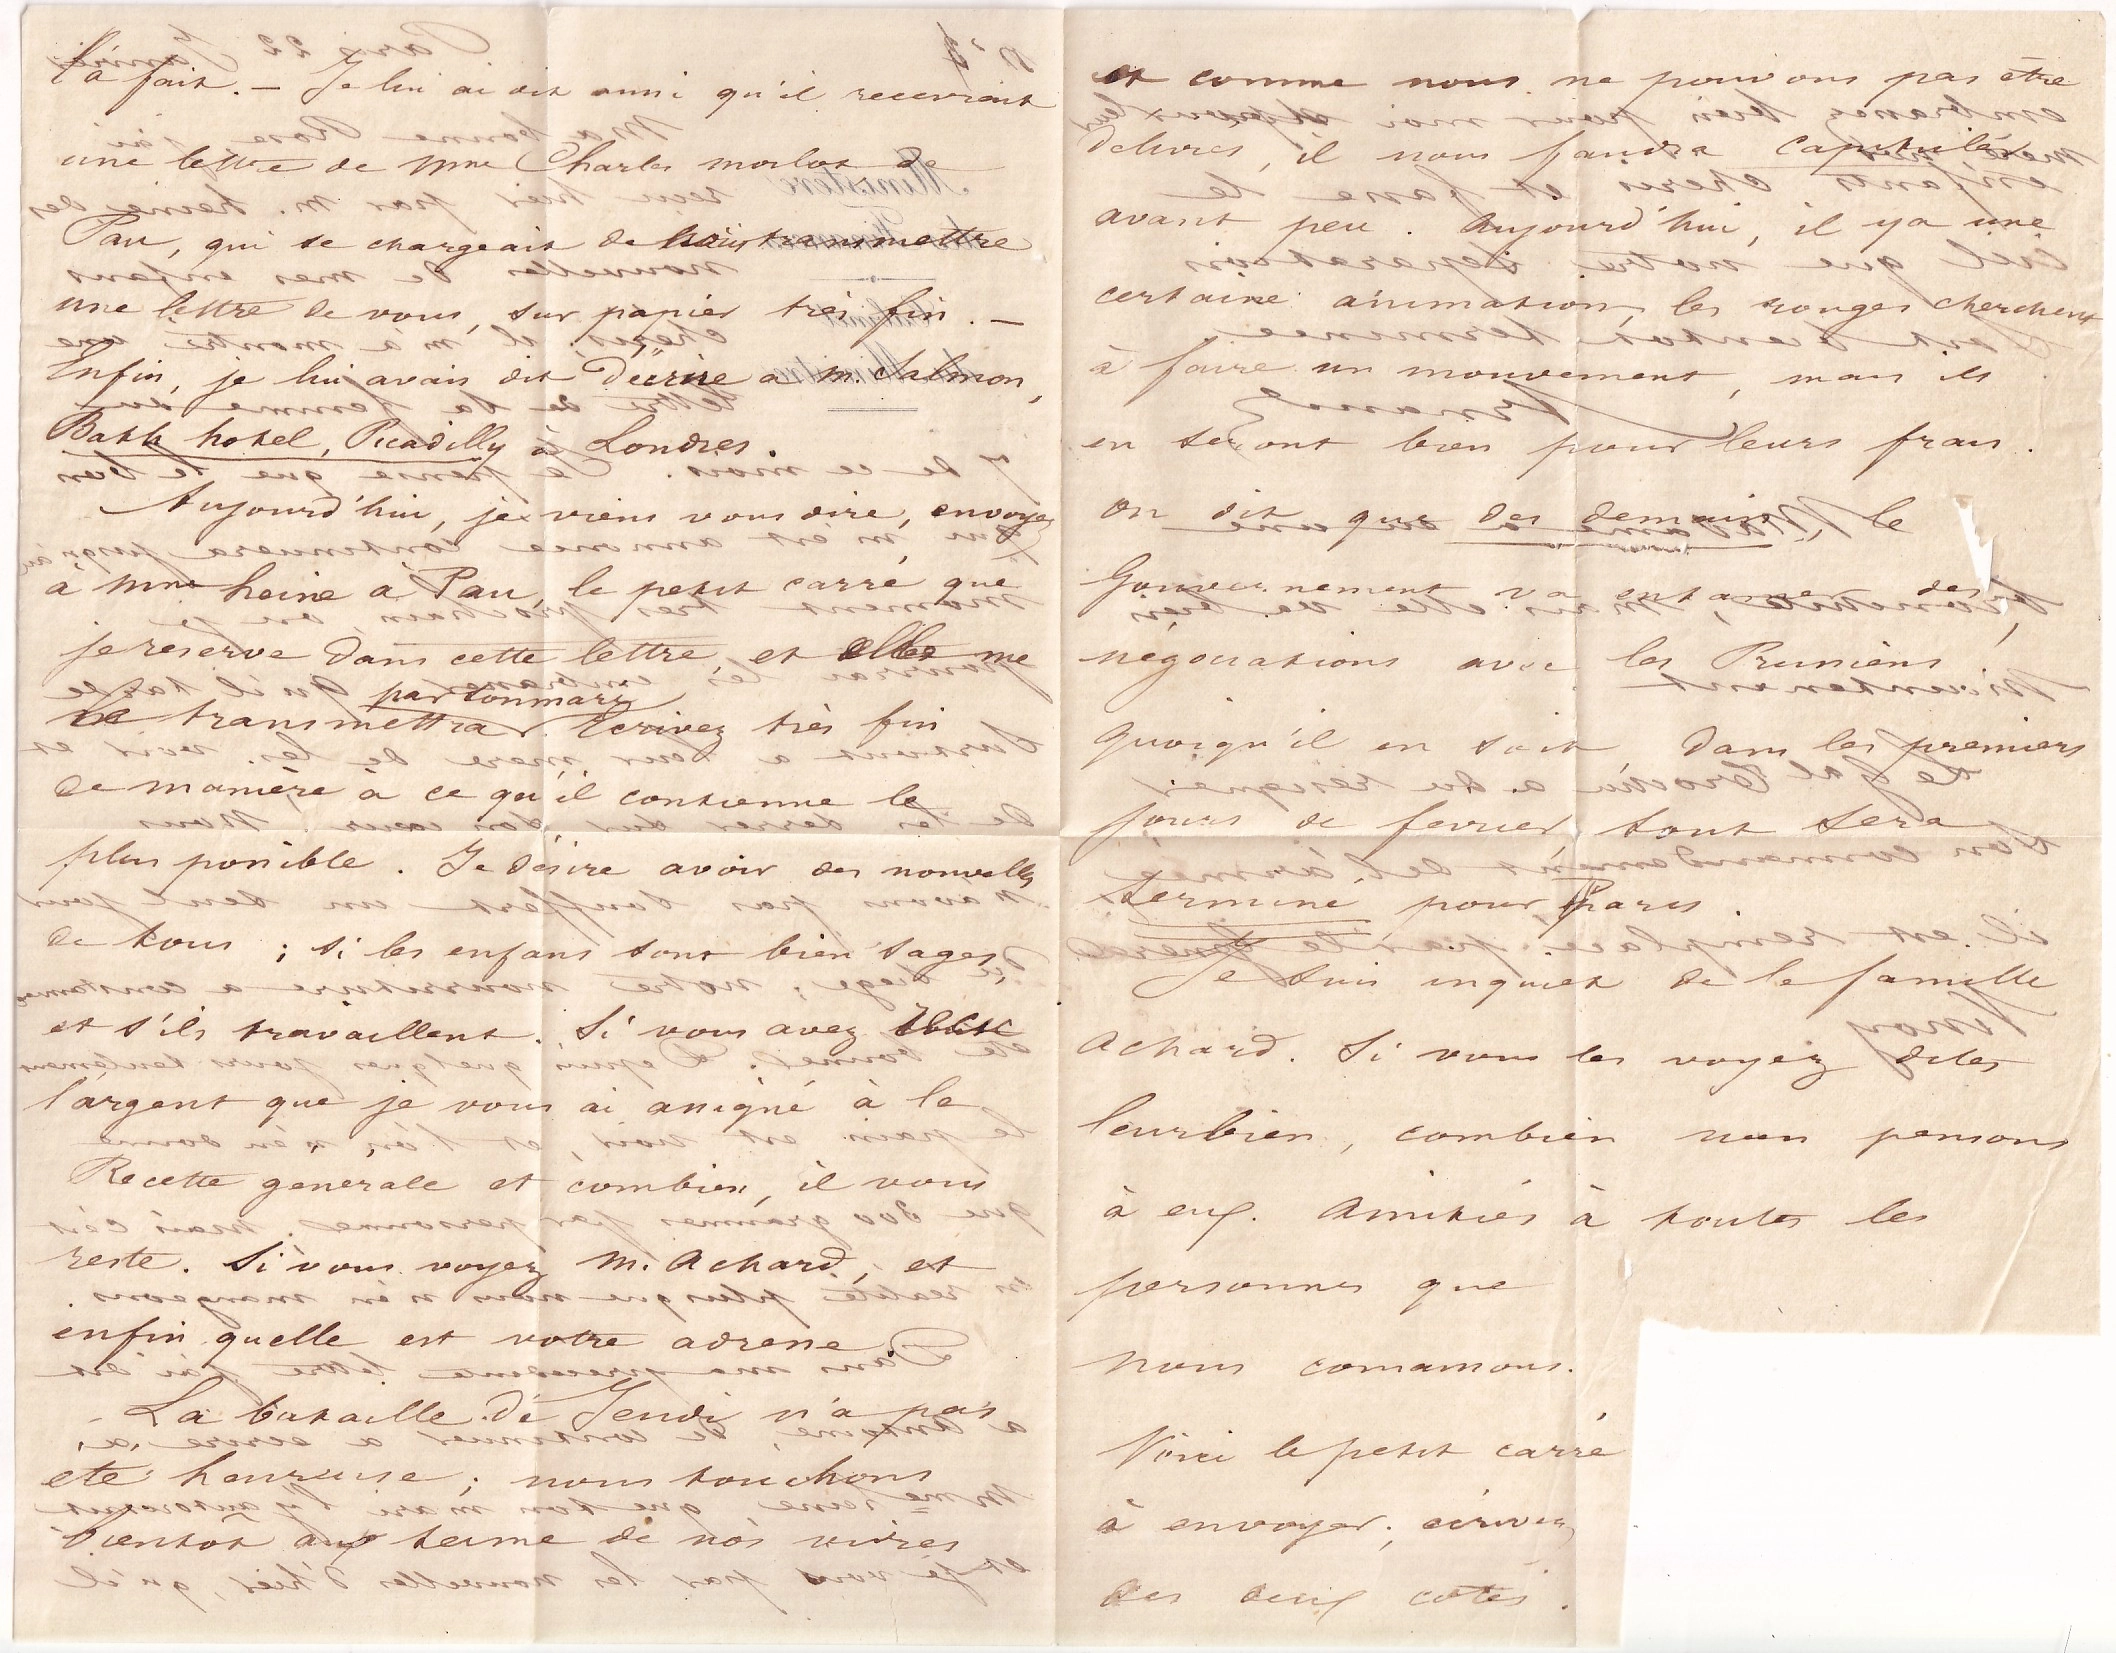 l'a fait. — Je lui ai dit aussi qu'il recevrait
une lettre de Mme Charles de
Pau, qui se chargeait de transmettre
une lettre de vous, sur papier très fin. —
Enfin, je lui avais dit d'écrire à M. Calmon,
Bath hotel, Picadilly à Londres.
Aujourd'hui, je viens vous dire, envoyez
à Mme heine à Pau, le petit carré que
je reserve dans cette lettre, et elle me
par son mary
le transmettra. Ecrivez très fin
de manière à ce qu'il contienne le
plus possible. Je désire avoir des nouvelles
de tous ; si les enfans sont bien sages,
et s'ils travaillent. Si vous avez
l'argent que je vous ai assigné à la
Recette generale et combien, il vous
reste. Si vous voyez M. Achard, et
enfin quelle est votre adresse.
La bataille de Jeudi n'a pas
ete heureuse ; nous touchons
bientot aux terme de nos vivres
et comme nous ne pouvons pas être
delivres, il nous faudra capituler
avant peu. Aujourd'hui, il y a une
certaine animation, les rouges cherchent
à faire un mouvement, mais ils
en seront bien pour leurs frais.
on dit que des demain le
Gouvernement va entamer des
négociations avec les Prussiens.
Quoiqu'il en soit dans les premiers
jours de fevrier tout sera
terminé pour Paris.
Je suis inquiet de la famille
Achard. Si vous les voyez dites
leur bien, combien nous pensons
à eux. Amitiés à toutes les
personnes que
nous connaissons.
Voici le petit carré
à envoyer ; écrivez
des deux cotés.